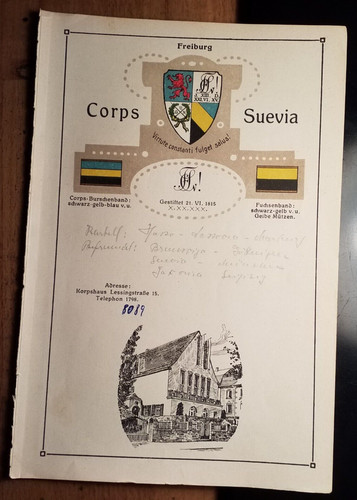 Freiburg
Corps Suevia
XIII
XXI.VI. XV
Virtute constanti fulget salus!
Corps-Burschenband:
schwarz-gelb-blau v. u.
Gestiftet 21. VI. 1815
X.-XX.-XXX.
Fuchsenband:
schwarz-gelb v. u.
Gelbe Mützen.
Kartell:
Befreundet:
Suevia
Leipzig
Adresse:
Korpshaus Lessingstraße 15.
Telephon 1796.
8089